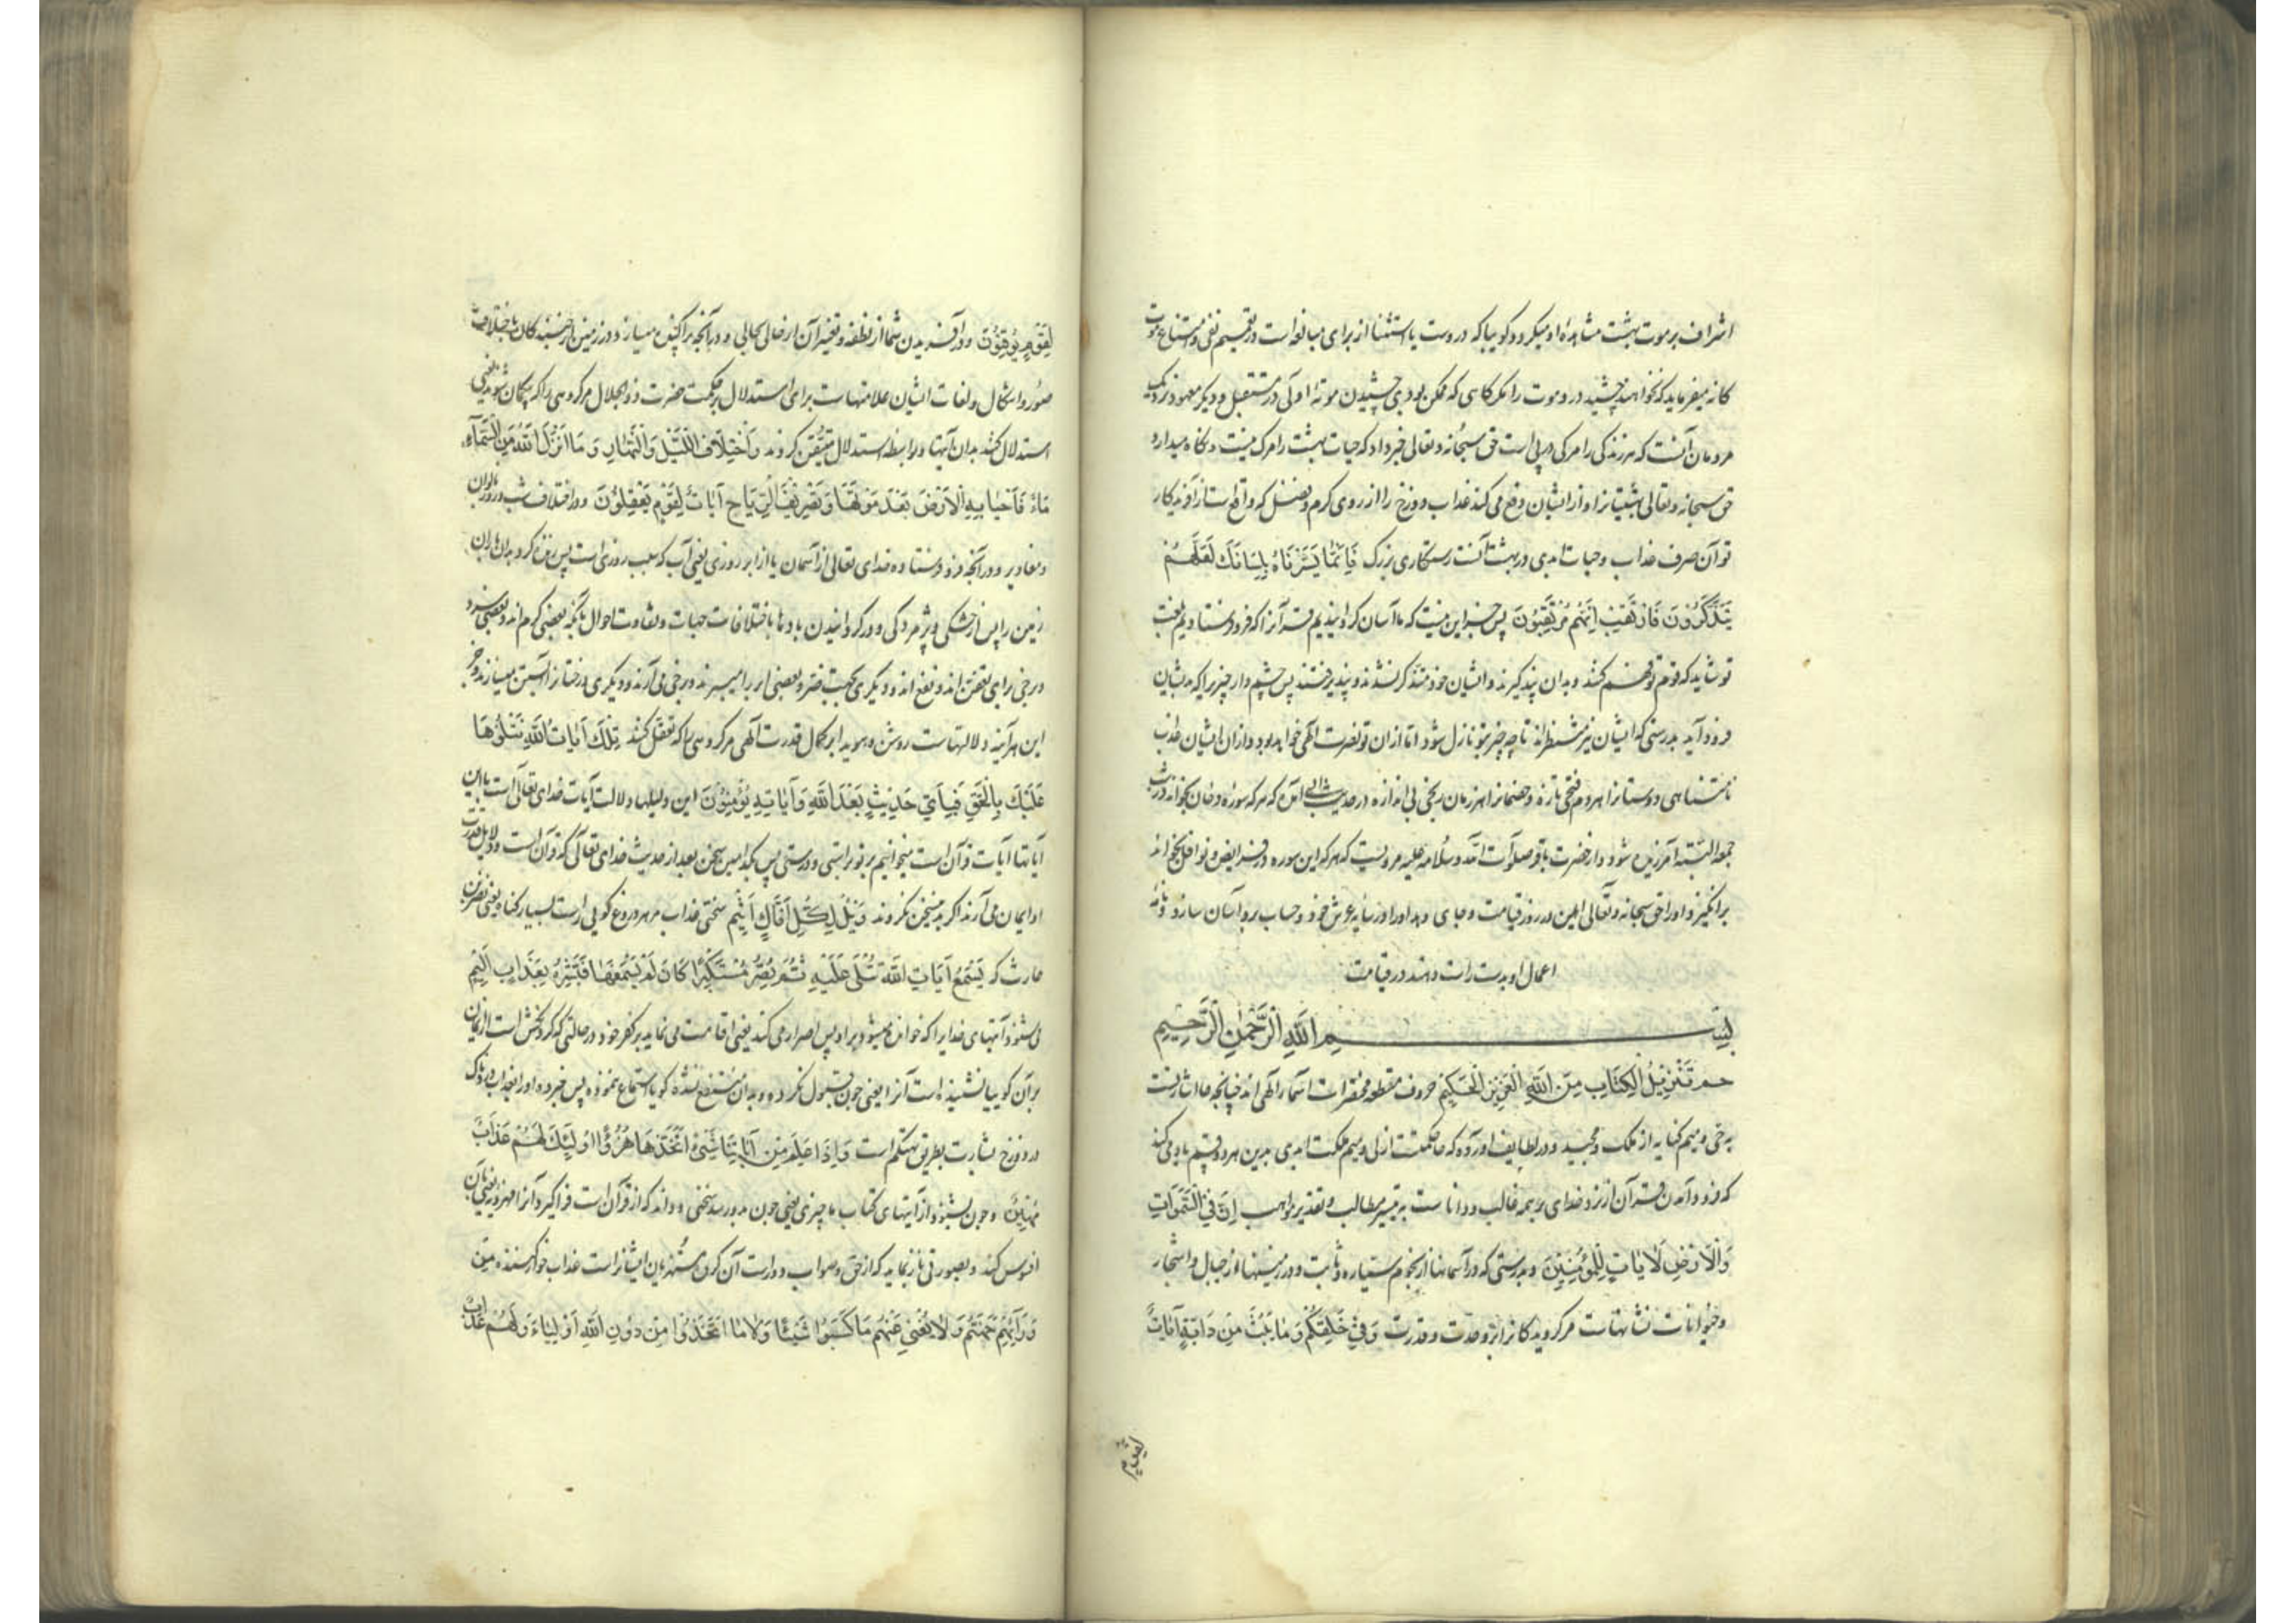 اشراف بر موت بهشت مشاهده او میکرد و گوییا که در وست یا استثنا از برای مبالغه است در تعمیم نفی و امتناع موت
کانه میفرماید که نخواهند چشید در و موت را مگر کاسی که ممکن بود چشیدن موته اولی در مستقبل و دیگر معهود نزدیک
مردمان آنست که هر زندگی را مرگی در پی است حق سبحانه و تعالی خبر داد که حیات بهشت را مرگ نیست و نگاه میدارد
حق سبحانه و تعالی بهشتیانرا و از ایشان دفع می کند عذاب دوزخ را از روی کرم و فضل که واقع است از آفریدگار
تو آن صرف عذاب و حیات ابدی در بهشت آنست رستگاری بزرگ فَإِنَّمَا يَسَّرْنَاهُ بِلِسَانِكَ لَعَلَّهُمْ
يَتَذَكَّرُونَ فَارْتَقِبْ إِنَّهُمْ مُرْتَقِبُونَ پس جز این نیست که ما آسان گردانیدیم قرآن را که فرو فرستادیم بلغت
تو شاید که قوم تو فهم کنند و بدان پند گیرند و ایشان خود متذکر نشدند و پند نپذیرفتند پس چشم دار چیزی را که بدیشان
فرود آید بدرستی که ایشان نیز منتظرانند تا چه چیز بتو نازل شود اما از ان تو نصرت الهی خواهد بود و از ان ایشان عذاب
نامتناهی دوستانرا هر دم فتحی تازه و خصمانرا هر زمان رنجی بی اندازه در حدیث آمده که هر که سوره دخان بخواند در شب
جمعه البته آمرزیده شود و از حضرت باقر صلوات الله و سلامه علیه مرویست که هر که این سوره در فرایض و نوافل بخواند
برانگیزد او را حق سبحانه و تعالی ایمن در روز قیامت و جای دهد او را در سایه عرش خود و حساب برو آسان سازد و نامه
اعمال او بدست راست دهند در قیامت
بِسْمِ اللَّهِ الرَّحْمَٰنِ الرَّحِيمِ
حم تَنْزِيلُ الْكِتَابِ مِنَ اللَّهِ الْعَزِيزِ الْحَكِيمِ حروف مقطعه مختصرات اسماء الهی اند چنانچه حا اشارتست
به حی و میم کنایه از ملک و مجید و در لطایف آورده که حا حکمتست ازلی و میم ملکت ابدی بدین هر دو قسم یاد می کند
که فرود آمدن قرآن از نزد خدای بر همه غالب و داناست به تیسیر مطالب و تقدیر مواهب إِنَّ فِي السَّمَوَاتِ
وَالْأَرْضِ لَآيَاتٍ لِلْمُؤْمِنِينَ و بدرستی که در آسمانها از نجوم سیاره و ثابت و در زمینها از جبال و اشجار
و حیوانات نشانهاست مر گرویدگانرا بر وحدت و قدرت وَفِي خَلْقِكُمْ وَمَا يَبُثُّ مِنْ دَابَّةٍ آيَاتٌ
لقوم
لِقَوْمٍ يُوقِنُونَ و در آفریدن شما از نطفه و تغیر آن از حالی بحالی و در آنچه پراکنده میسازد در زمین از جنبندگان باختلاف
صور و اشکال و لغات ایشان علامتهاست برای استدلال بر حکمت حضرت ذو الجلال مر گروهی را که بیگمان شوند یعنی
استدلال کنند بدان آیتها و بواسطه استدلال متیقن گردند وَاخْتِلَافِ اللَّيْلِ وَالنَّهَارِ وَمَا أَنْزَلَ اللَّهُ مِنَ السَّمَاءِ
مَاءً فَأَحْيَا بِهِ الْأَرْضَ بَعْدَ مَوْتِهَا وَتَصْرِيفِ الرِّيَاحِ آيَاتٌ لِقَوْمٍ يَعْقِلُونَ و در اختلاف شب و روز بالوان
و مقادیر و در آنچه فرو فرستاده خدای تعالی از آسمان یا از ابر روزی یعنی آب که سبب روزی است پس زنده کرد بدان باران
زمین را پس از خشکی و پژمردگی و در گردانیدن بادها باختلاف جهات و تفاوت احوال بآنکه بعضی گرم اند و بعضی سرد
و برخی را برای نفع اند و دیگری بجهت ضر و بعضی ابر را میبرند و برخی می آرند و دیگری درختانرا آبستن میسازند
این هر آینه دلالتهاست روشن و هویدا بر کمال قدرت الهی مر گروهی را که تعقل کنند تِلْكَ آيَاتُ اللَّهِ نَتْلُوهَا
عَلَيْكَ بِالْحَقِّ فَبِأَيِّ حَدِيثٍ بَعْدَ اللَّهِ وَآيَاتِهِ يُؤْمِنُونَ این دلیلها دلالت آیات خدای تعالی است یا این
آیتها آیات قرآن است میخوانیم بر تو براستی و درستی پس بکدامین سخن بعد از حدیث خدای تعالی که قرآن است و دلایل قدرت
او ایمان می آرند اگر بدین سخن نگروند وَيْلٌ لِكُلِّ أَفَّاكٍ أَثِيمٍ سختی عذاب مر هر دروغ گویی راست بسیار گناه یعنی نضر بن
حارث که يَسْمَعُ آيَاتِ اللَّهِ تُتْلَى عَلَيْهِ ثُمَّ يُصِرُّ مُسْتَكْبِرًا كَأَنْ لَمْ يَسْمَعْهَا فَبَشِّرْهُ بِعَذَابٍ أَلِيمٍ
می شنود آیتهای خدایرا که خوانده میشود برو پس اصرار می کند یعنی اقامت می نماید بر کفر خود در حالتی که گردنکش است از ایمان
بر آن گوییا نشنیده است آنرا یعنی چون قبول نکرده و بدان منتفع نشده گویا استماع ننموده پس خبر ده او را بعذاب دردناک
در دوزخ بشارت بطریق تهکم است وَإِذَا عَلِمَ مِنْ آيَاتِنَا شَيْئًا اتَّخَذَهَا هُزُوًا أُولَئِكَ لَهُمْ عَذَابٌ
مُهِينٌ و چون بشنود از آیتهای کتاب ما چیزی یعنی چون بدو رسد سخنی و داند که از قرآن است فرا گیرد آنرا مهزو یعنی بآن
افسوس کند و بصورتی باز نماید که از حق و صواب دورست آن گروه مستهزیان ایشانراست عذاب خوارکننده مِنْ
وَرَائِهِمْ جَهَنَّمُ وَلَا يُغْنِي عَنْهُمْ مَا كَسَبُوا شَيْئًا وَلَا مَا اتَّخَذُوا مِنْ دُونِ اللَّهِ أَوْلِيَاءَ وَلَهُمْ عَذَابٌ